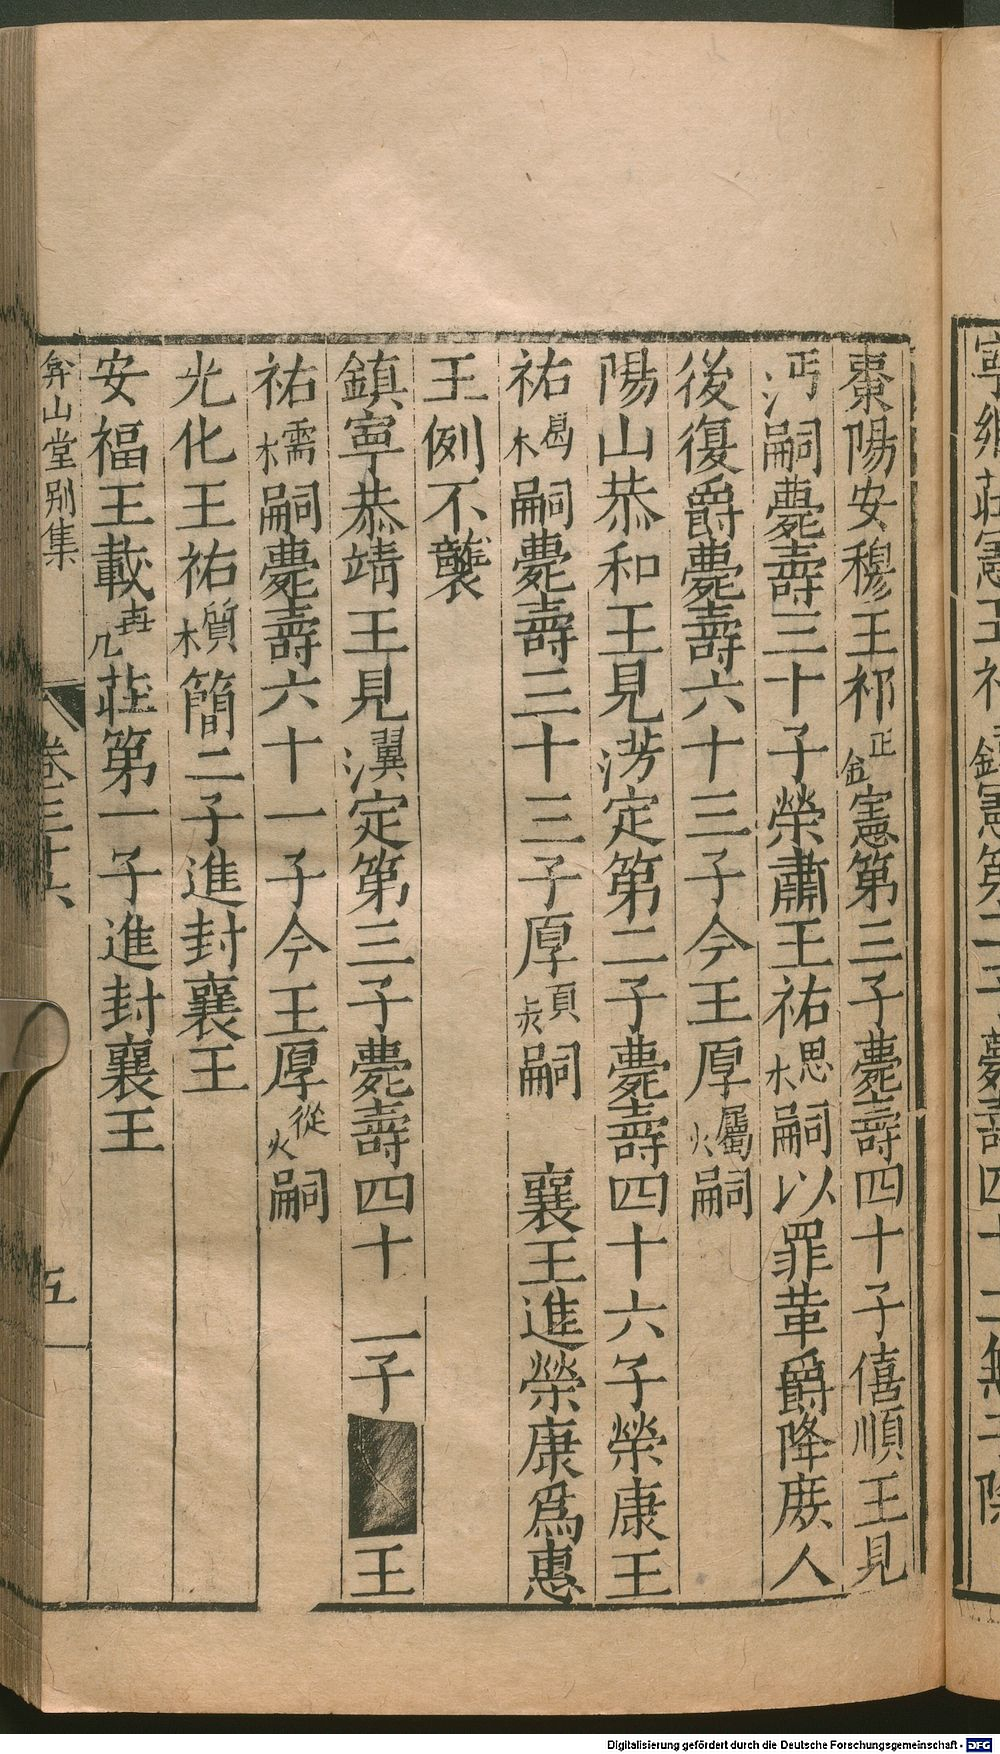 棗陽安穆王祁鉦憲第三子薨壽四十子僖順王見
沔嗣薨壽三十子榮肅王祐楒嗣以罪革爵降庶人
後復爵薨壽六十三子今王厚爥嗣
陽山恭和王見淓定第二子薨壽四十六子榮康王
祐楬嗣薨壽三十三子厚熲嗣 襄王進榮康爲惠
王例不襲
鎮寧恭靖王見瀷定第三子薨壽四十一子 王
祐檽嗣薨壽六十一子今王厚熧嗣
光化王祐櫍簡二子進封襄王
安福王載堯莊第一子進封襄王
弇山堂別集
卷三十六
五
Digitalisierung gefördert durch die Deutsche Forschungsgemeinschaft - DFG